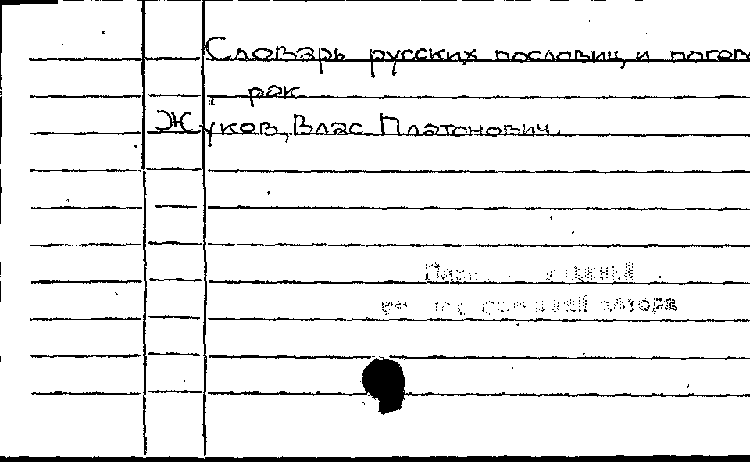 Словарь русских пословиц и погов
рок
Жуков, Влас Платонович.
автора